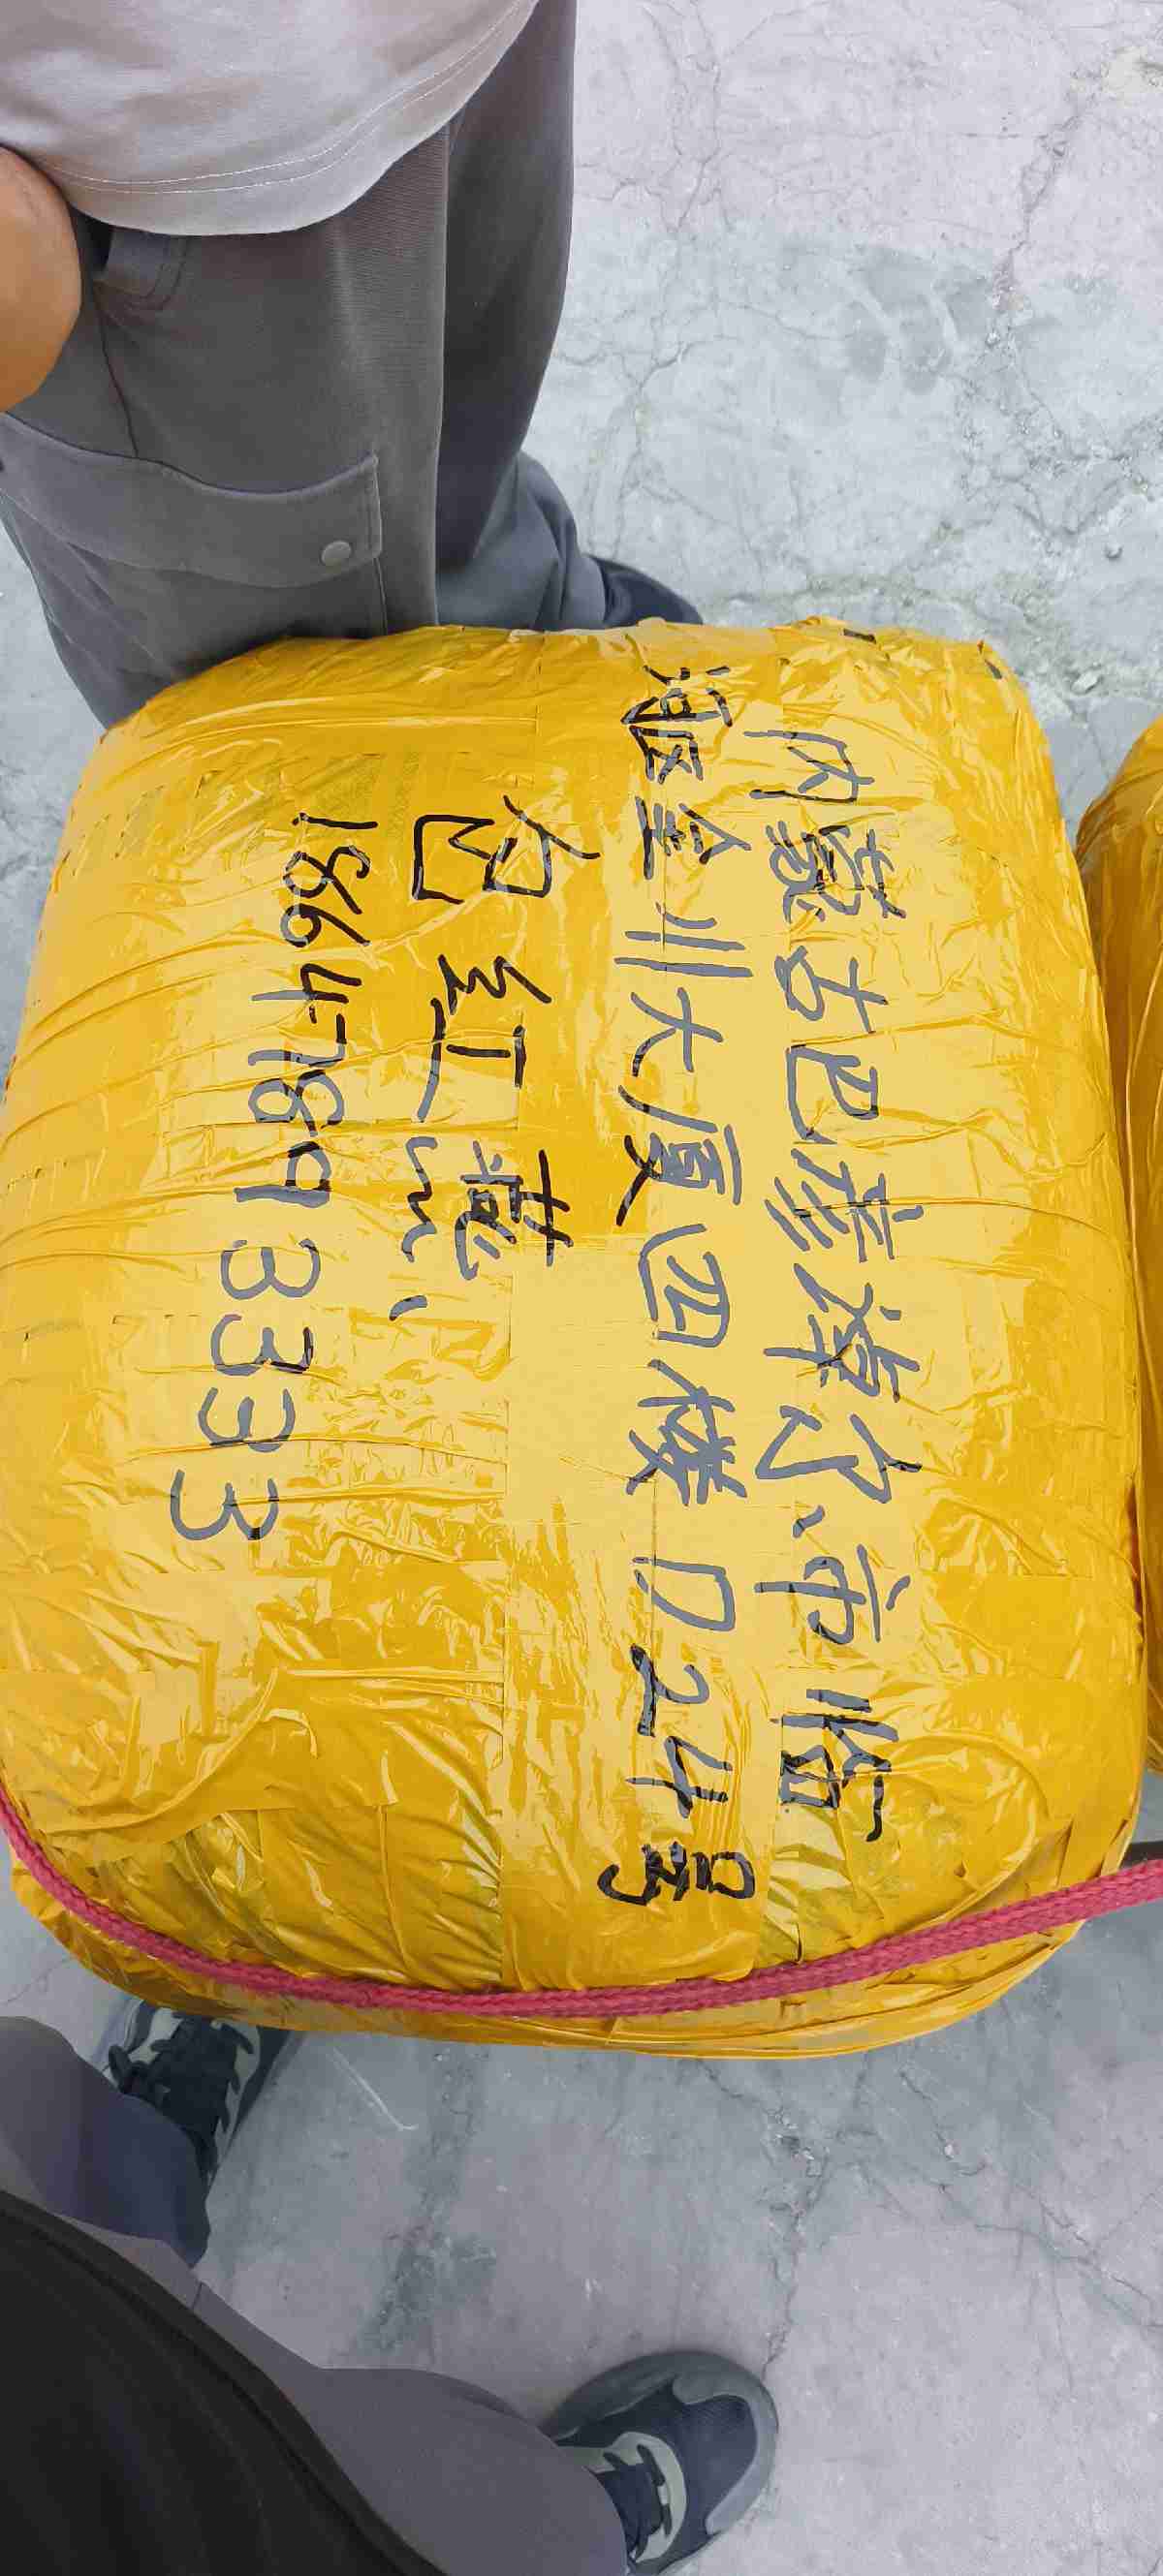 内蒙古巴彦淖尔市临
河区金川大厦四楼口24号
包红燕
18647893333